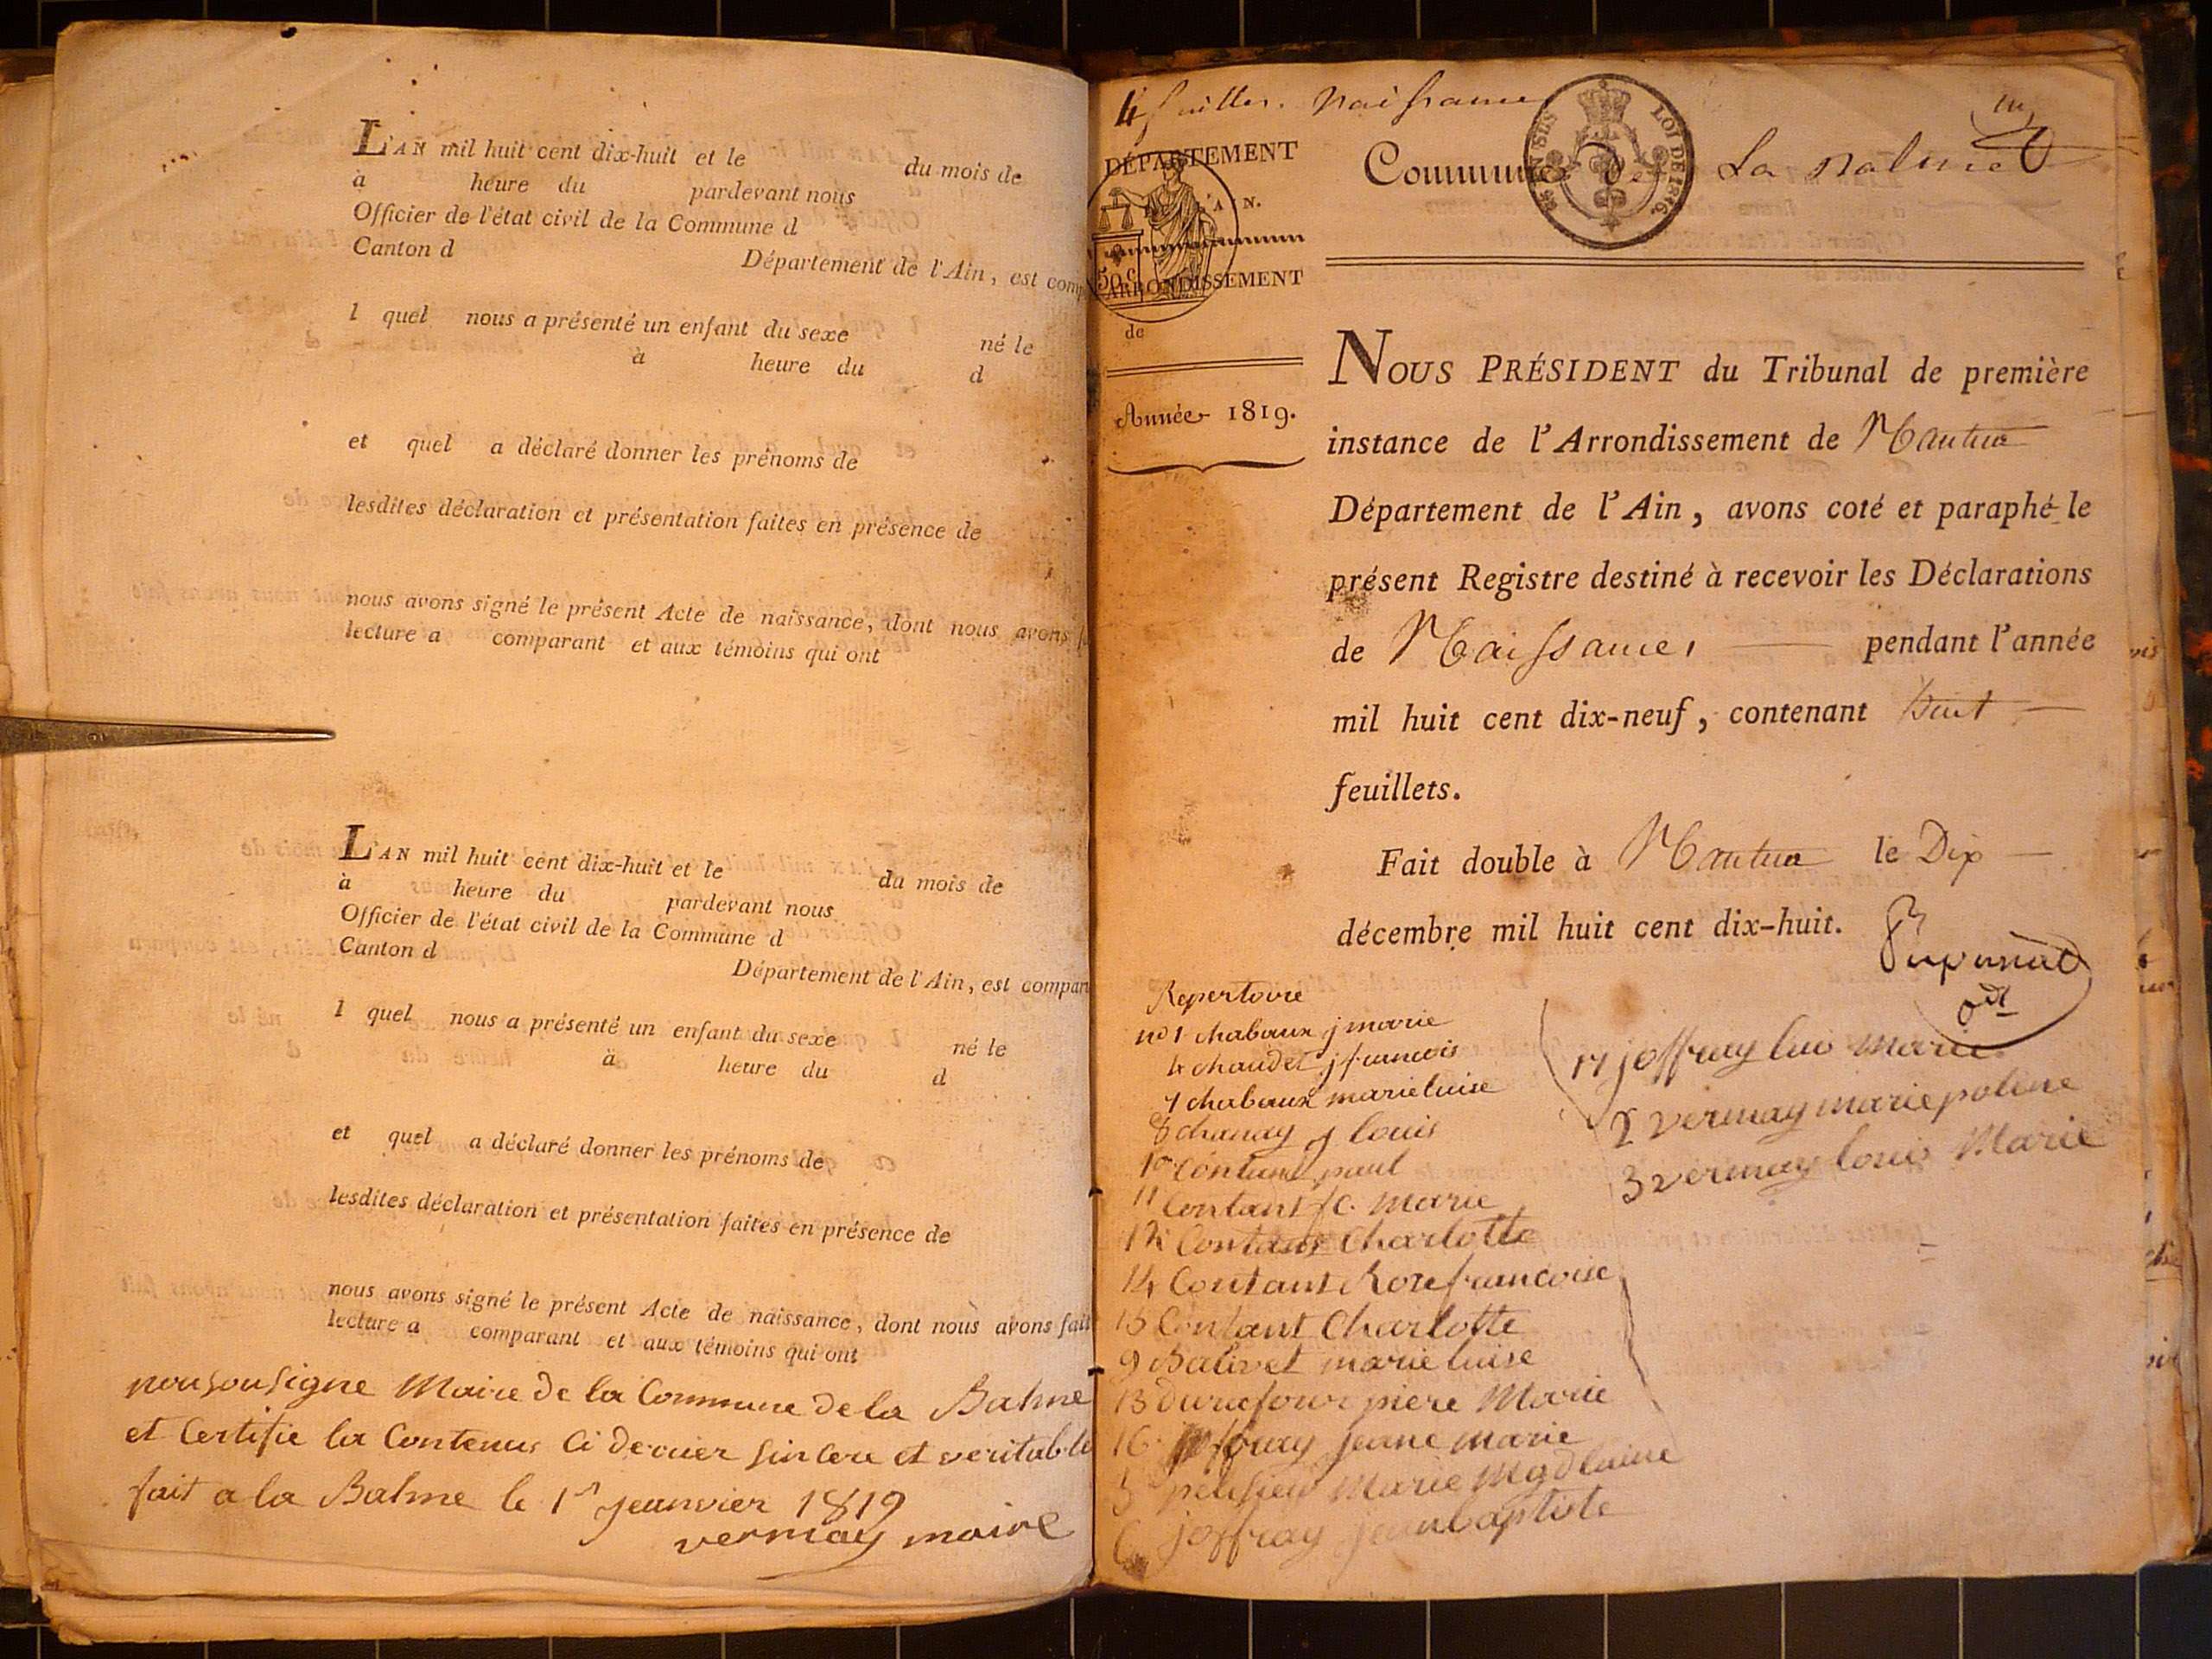 L'AN mil huit cent dix-huit et le du mois de
à heure du pardevant nous
Officier de l'état civil de la Commune d
Canton d Département de l'Ain, est comp
l quel nous a présenté un enfant du sexe né le
à heure du d
et quel a déclaré donner les prénoms de
lesdites déclaration et présentation faites en présence de
nous avons signé le présent Acte de naissance, dont nous avons f
lecture a comparant et aux témoins qui ont
L'AN mil huit cent dix-huit et le du mois de
à heure du pardevant nous
Officier de l'état civil de la Commune d
Canton d Département de l'Ain, est compar
l quel nous a présenté un enfant du sexe né le
à heure du d
et quel a déclaré donner les prénoms de
lesdites déclaration et présentation faites en présence de
nous avons signé le présent Acte de naissance, dont nous avons fait
lecture a comparant et aux témoins qui ont
nousousigne Maire de la Commune de la Balme
et Certifie la Contenus Ci dernier sincere et veritable
fait a la Balme le 1r jeanvier 1819
vermay maire
4 feuilles. Naissance
DÉPARTEMENT
DE L'AIN.
ARRONDISSEMENT
de
50 c
Année 1819.
EN SUS LOI DE 1816.
Commune De La Balme
NOUS PRÉSIDENT du Tribunal de première
instance de l'Arrondissement de Nantua
Département de l'Ain, avons coté et paraphé le
présent Registre destiné à recevoir les Déclarations
de Naissances pendant l'année
mil huit cent dix-neuf, contenant huit
feuillets.
Fait double à Nantua le Dix
décembre mil huit cent dix-huit.
Repertoire
no 1 chabaux j marie
4 chaudet j francois
7 chabaux marie luise
8 chanay j louis
10 Contant paul
11 Contant fc. Marie
12 Contant Charlotte
14 Contant Rose francoise
15 Contant Charlotte
9 Balivet marie luise
13 durafour piere Marie
16 joffray jeane marie
5 pelissey Marie Mgdlaine
6 joffray jeanbaptiste
17 joffray luis marie
2 vermay marie poline
3 vermay louis Marie